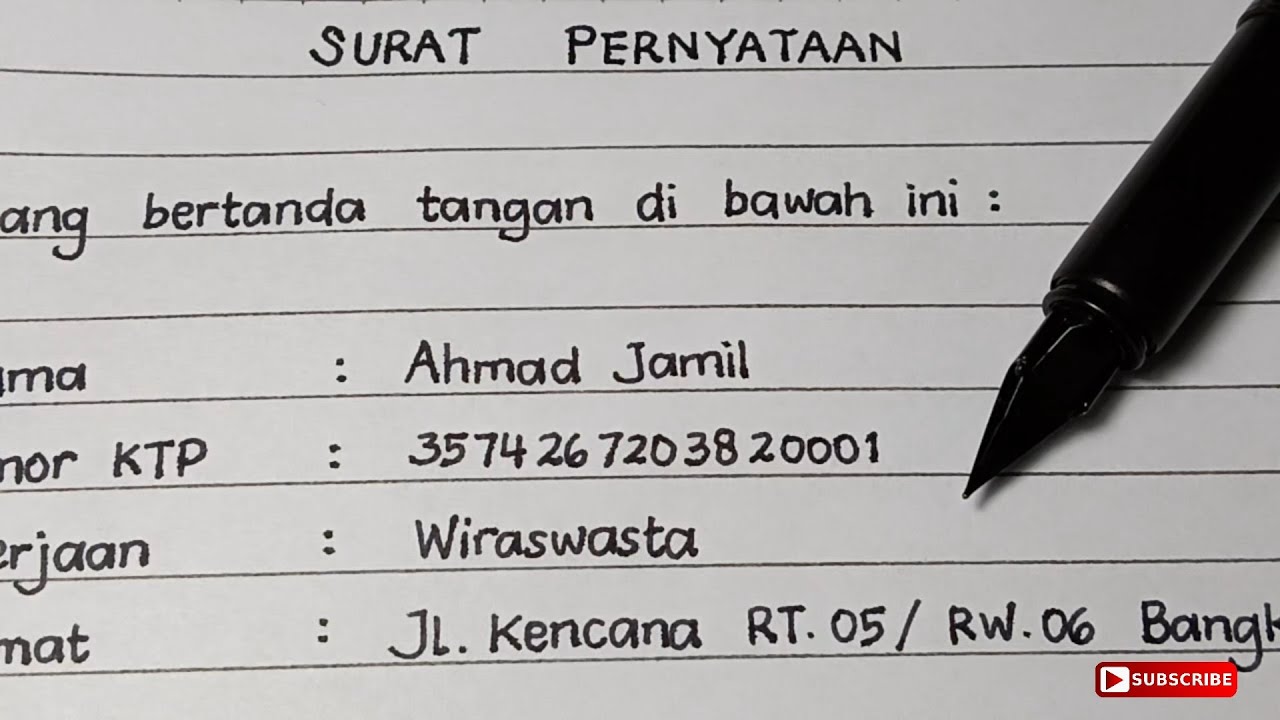 SURAT PERNYATAAN
ang bertanda tangan di bawah ini :
ama : Ahmad Jamil
nor KTP : 3574267203820001
erjaan : Wiraswasta
mat : Jl. Kencana RT. 05 / RW. 06 Bangk
SUBSCRIBE